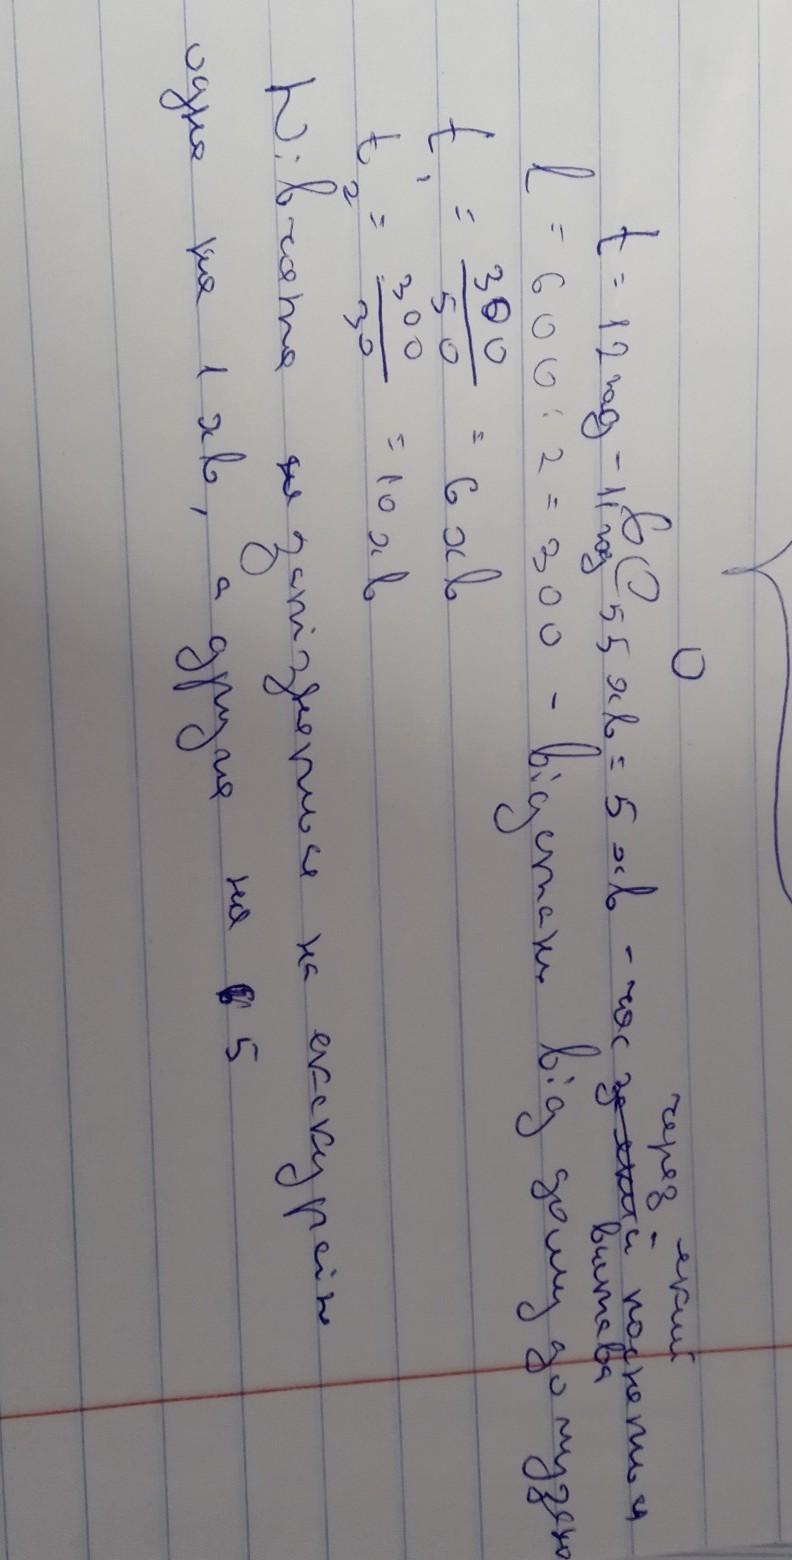 ВС
через який
t = 12 год - 11 год 55 хв = 5 хв - час почнеться
вистава
l = 600 : 2 = 300 - відстань від дому до музею
t₁ = 300/50 = 6 хв
t₂ = 300/30 = 10 хв
дівчата запізняться на екскурсію
одна на 1 хв, а друга на 5